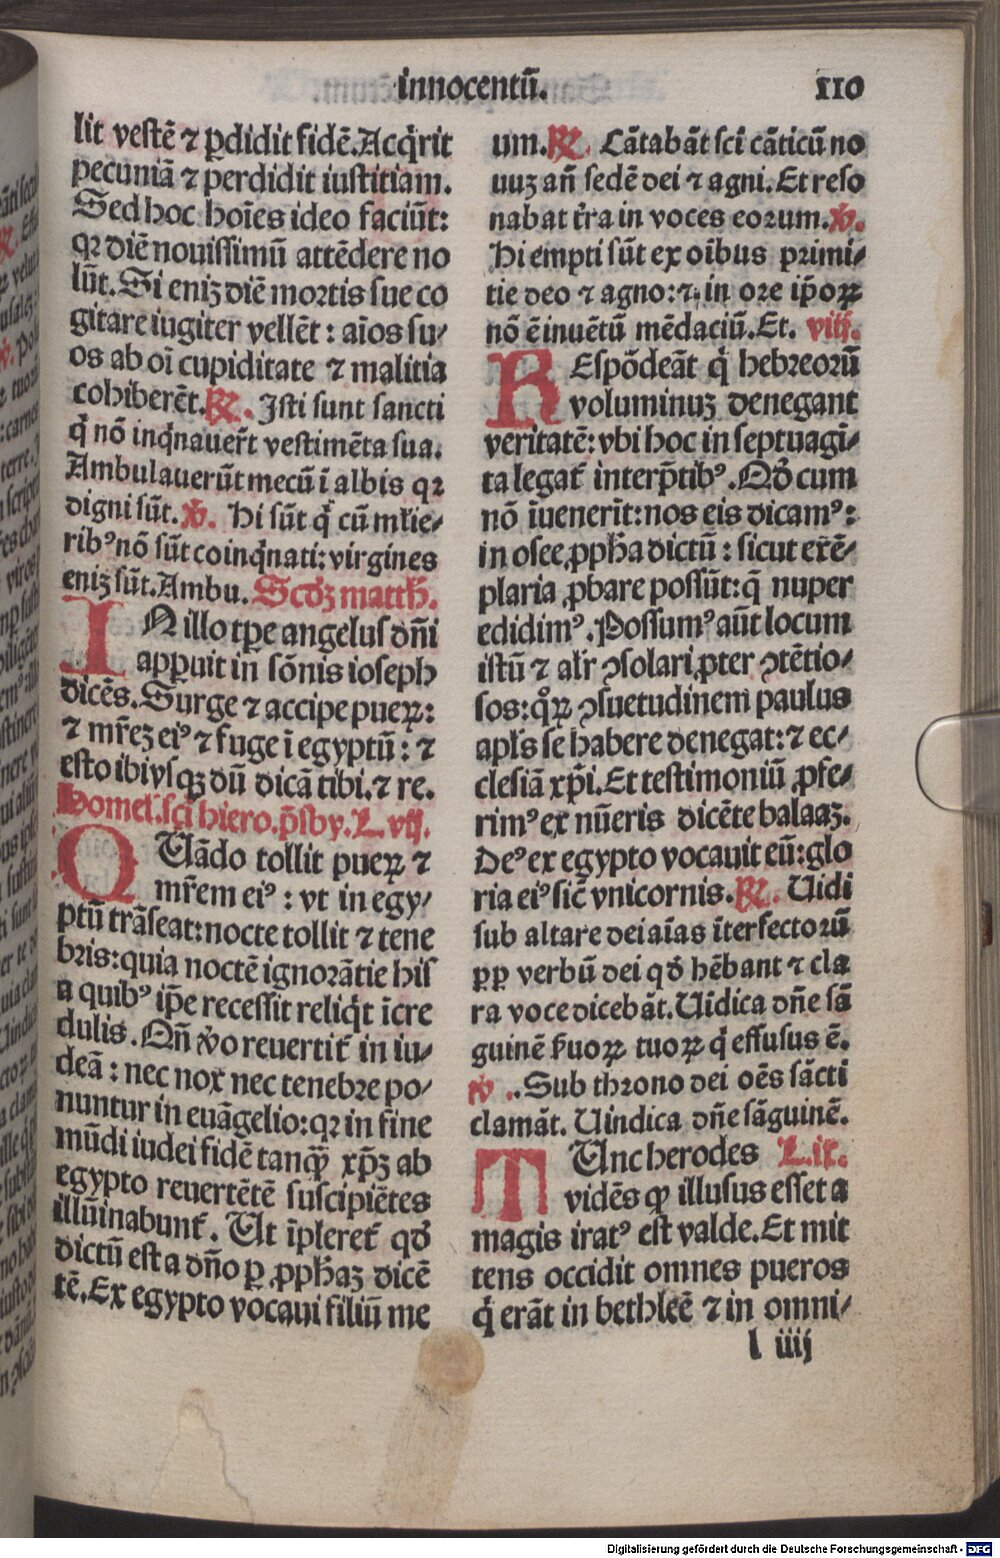 innocentū.
110
lit vestē ⁊ ꝑdidit fidē. Acq̇rit
pecuniā ⁊ perdidit iustitiam.
Sed hoc hoīes ideo faciūt:
qꝛ diē nouissimū attēdere no
lūt. Si enīꝫ diē mortis sue co
gitare iugiter vellēt : aīos su⸗
os ab oī cupiditate ⁊ malitia
cohiberēt. ℟. Isti sunt sancti
q̇ nō inq̇nauer̄t vestimēta sua.
Ambulauerūt mecū ī albis qꝛ
digni sūt. ℣. Hi sūt q̇ cū mr̄ie⸗
ribꝰ nō sūt coinq̇nati: virgines
eniꝫ sūt. Ambu. Scd̄ꝫ matth̄.
IN illo tꝑe angelus dn̄i
apꝑuit in sōnis ioseph
dicēs. Surge ⁊ accipe pueꝝ:
⁊ mr̄eꝫ eiꝰ ⁊ fuge ī egyptū : ⁊
esto ibi vsqꝫ dū dicā tibi. ⁊ re.
Homel̄. scī hiero. p̄sby. L. vij.
QUādo tollit pueꝝ ⁊
mr̄em eiꝰ : vt in egy⸗
ptū trāseat: nocte tollit ⁊ tene
bris: quia noctē ignorātie his
a quibꝰ ip̄e recessit reliq̇t īcre
dulis. Qn̄ ꝟo reuertit᷑ in iu⸗
deā : nec nox nec tenebre po⸗
nuntur in euāgelio: qꝛ in fine
mūdi iudei fidē tanqꝫ̄ xp̄ꝫ ab
egypto reuertētē suscipiētes
illūinabunt᷑. Ut īpleret᷑ qd̄
dictū est a dn̄o ꝑ ꝓph̄aꝫ dicē
tē. Ex egypto vocaui filiū me
um. ℟. Cātabāt scī cāticū no
uuꝫ an̄ sedē dei ⁊ agni. Et reso
nabat tr̄a in voces eorum. ℣.
Hi empti sūt ex oībus primi⸗
tie deo ⁊ agno: ⁊. in ore ip̄oꝝ
nō ē inuētū mēdaciū. Et. viij.
REspōdeāt q̇ hebreorū
voluminuꝫ denegant
veritatē: vbi hoc in septuagī⸗
ta legat᷑ interp̄tibꝰ. Qd̄ cum
nō īuenerīt: nos eis dicamꝰ:
in osee ꝓph̄a dictū : sicut exē⸗
plaria ꝓbare possūt: q̄ nuper
edidimꝰ. Possumꝰ aūt locum
istū ⁊ alr̄ ꝯsolari ꝓter ꝯtētio⸗
sos: qͦꝝ ꝯsuetudinem paulus
apl̄s se habere denegat: ⁊ ec⸗
clesiā xp̄i. Et testimoniū ꝓfe⸗
rimꝰ ex nūeris dicēte balaaꝫ.
Deꝰ ex egypto vocauit eū: glo
ria eiꝰ sic̄ vnicornis. ℟. Uidi
sub altare dei aīas īterfectorū
ꝓꝑ verbū dei qd̄ hēbant ⁊ cla
ra voce dicebāt. Uīdica dn̄e sā
guinē ẜuoꝝ tuoꝝ q̇ effusus ē.
℣. Sub throno dei oēs sācti
clamāt. Uindica dn̄e sāguinē.
TUnc herodes L. ix.
vidēs ꝙ illusus esset a
magis iratꝰ est valde. Et mit
tens occidit omnes pueros
q̇ erāt in bethleē ⁊ in omni⸗
l iiij
Digitalisierung gefördert durch die Deutsche Forschungsgemeinschaft - DFG